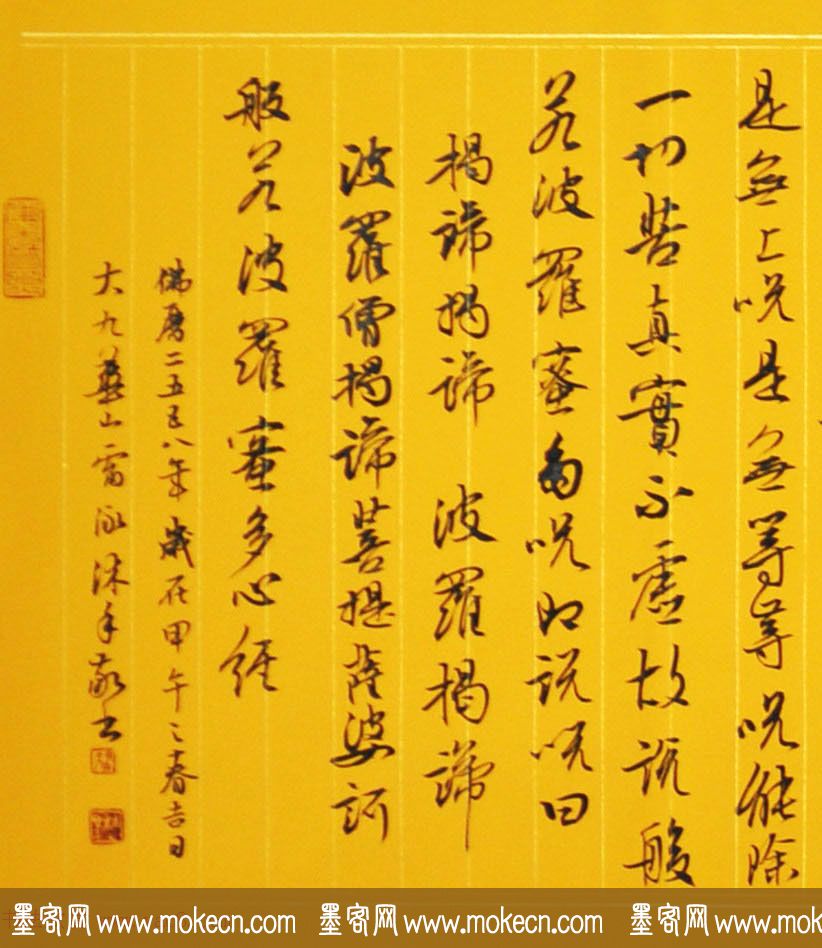 是無上呪是無等等呪能除
一切苦真實不虛故說般
若波羅蜜多呪即說呪曰
揭諦揭諦 波羅揭諦
波羅僧揭諦菩提薩婆訶
般若波羅蜜多心經
佛曆二五五八年歲在甲午之春吉日
大九華山雷沐手敬書
墨客网 www.mokecn.com 墨客网 www.mokecn.com 墨客网 www.mokecn.c